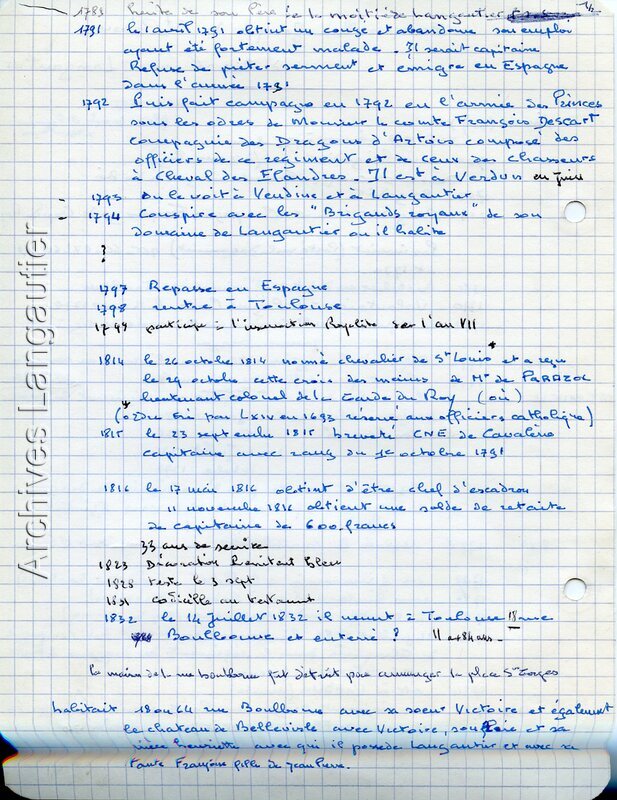 1783 hérite de son père de la moitié de Langautier 1/2
1791 le 1 avril 1791 obtint un congé et abandonne son emploi
ayant été fortement malade. Il serait capitaine
Refuse de prêter serment et émigre en Espagne
dans l'année 1791
1792 Puis fait campagne en 1792 en l'armée des Princes
sous les odres de Monsieur le comte François Descart
compagnie des Dragons d'Artois composé des
officiers de ce régiment et de ceux des chasseurs
à Cheval des Flandres. Il est à Verdun en Juin
- 1793 On le voit à Vendine et à Langautier
- 1794 Conspire avec les "Brigands royaux" de son
Domaine de Langautier ou il habite
?
1797 Repasse en Espagne
1798 rentre à Toulouse
1799 participe à l'insurrection Royaliste de l'an VII
1814 le 26 octobre 1814 nommé chevalier de St Louis * et a reçu
le 29 octobre cette croix des mains de Mr de PARAZOL
lieutenant colonel de la Garde du Roy (où)
(* Odre créé par LXIV en 1693 réservé aux officiers catholique)
1815 le 23 septembre 1815 breveté CNE de Cavalerie
capitaine avec rang du 1er octobre 1791
1816 le 17 mai 1816 obtint d'être chef d'escadron
" novembre 1816 obtient une solde de retraite
de capitaine de 600 francs
33 ans de service
1823 Décoration Pénitent Bleu
1828 teste le 3 sept
1831 codicille au testament
1832 le 14 Juillet 1832 il meurt à Toulouse 18 rue
Boulbonne et enterré ? Il a 84 ans.
La maison de la rue boulbonne fut détruit pour aménager la place St Georges
habitait 18 ou 64 rue Boulbonne avec sa soeur Victoire et également
le chateau de Bellevisle avec Victoire, son frère et sa
nièce henriette avec qui il possède Langautier et avec sa
tante Françoise fille de Jean Pierre.
Archives Langautier